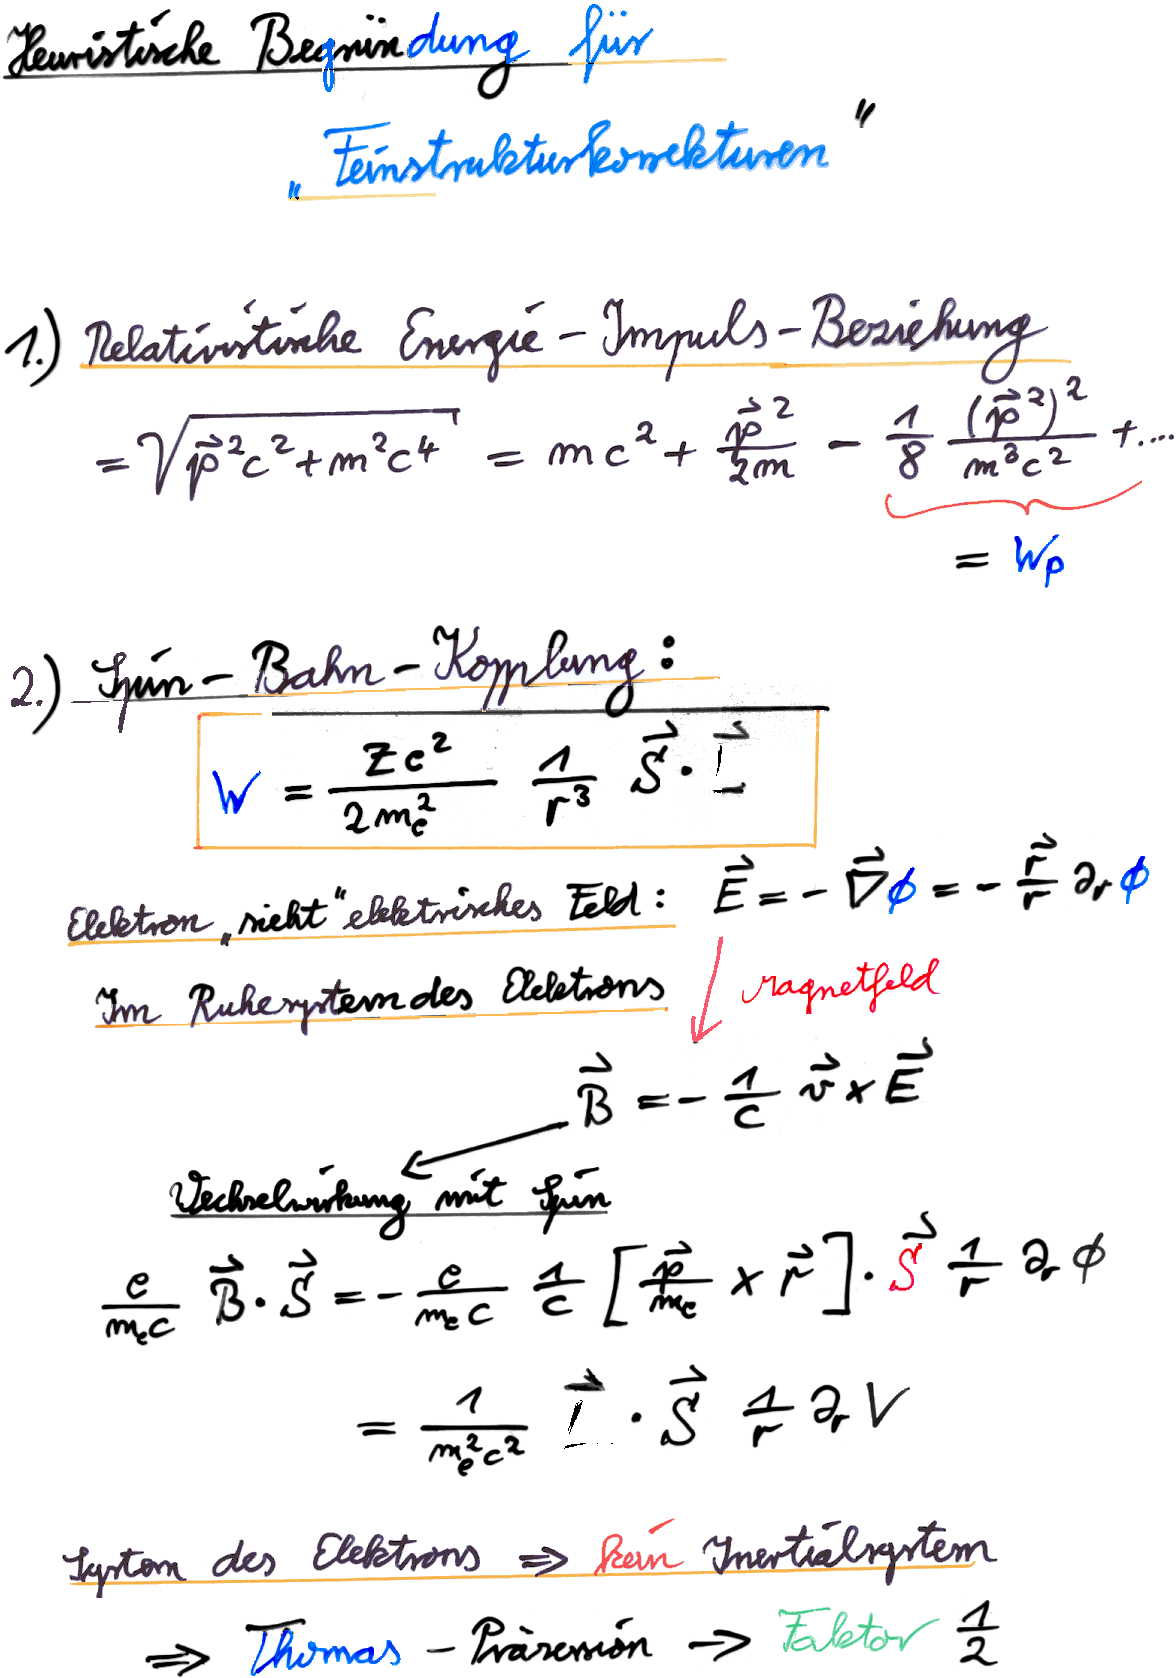 Heuristische Begründung für
„Feinstrukturkorrekturen"
1.) Relativistische Energie-Impuls-Beziehung
= √(p⃗²c² + m²c⁴) = mc² + p⃗²/2m − 1/8 (p⃗²)²/m³c² + ....
= W_p
2.) Spin-Bahn-Kopplung:
W = Ze²/2m_e² 1/r³ S⃗ · L⃗
Elektron „sieht" elektrisches Feld: E⃗ = − ∇⃗ϕ = − r⃗/r ∂_r ϕ
Im Ruhesystem des Elektrons Magnetfeld
B⃗ = − 1/c v⃗ × E⃗
Wechselwirkung mit Spin
e/m_e c B⃗ · S⃗ = − e/m_e c 1/c [p⃗/m_e × r⃗] · S⃗ 1/r ∂_r ϕ
= 1/m_e²c² L⃗ · S⃗ 1/r ∂_r V
System des Elektrons ⇒ kein Inertialsystem
⇒ Thomas-Präzession → Faktor 1/2